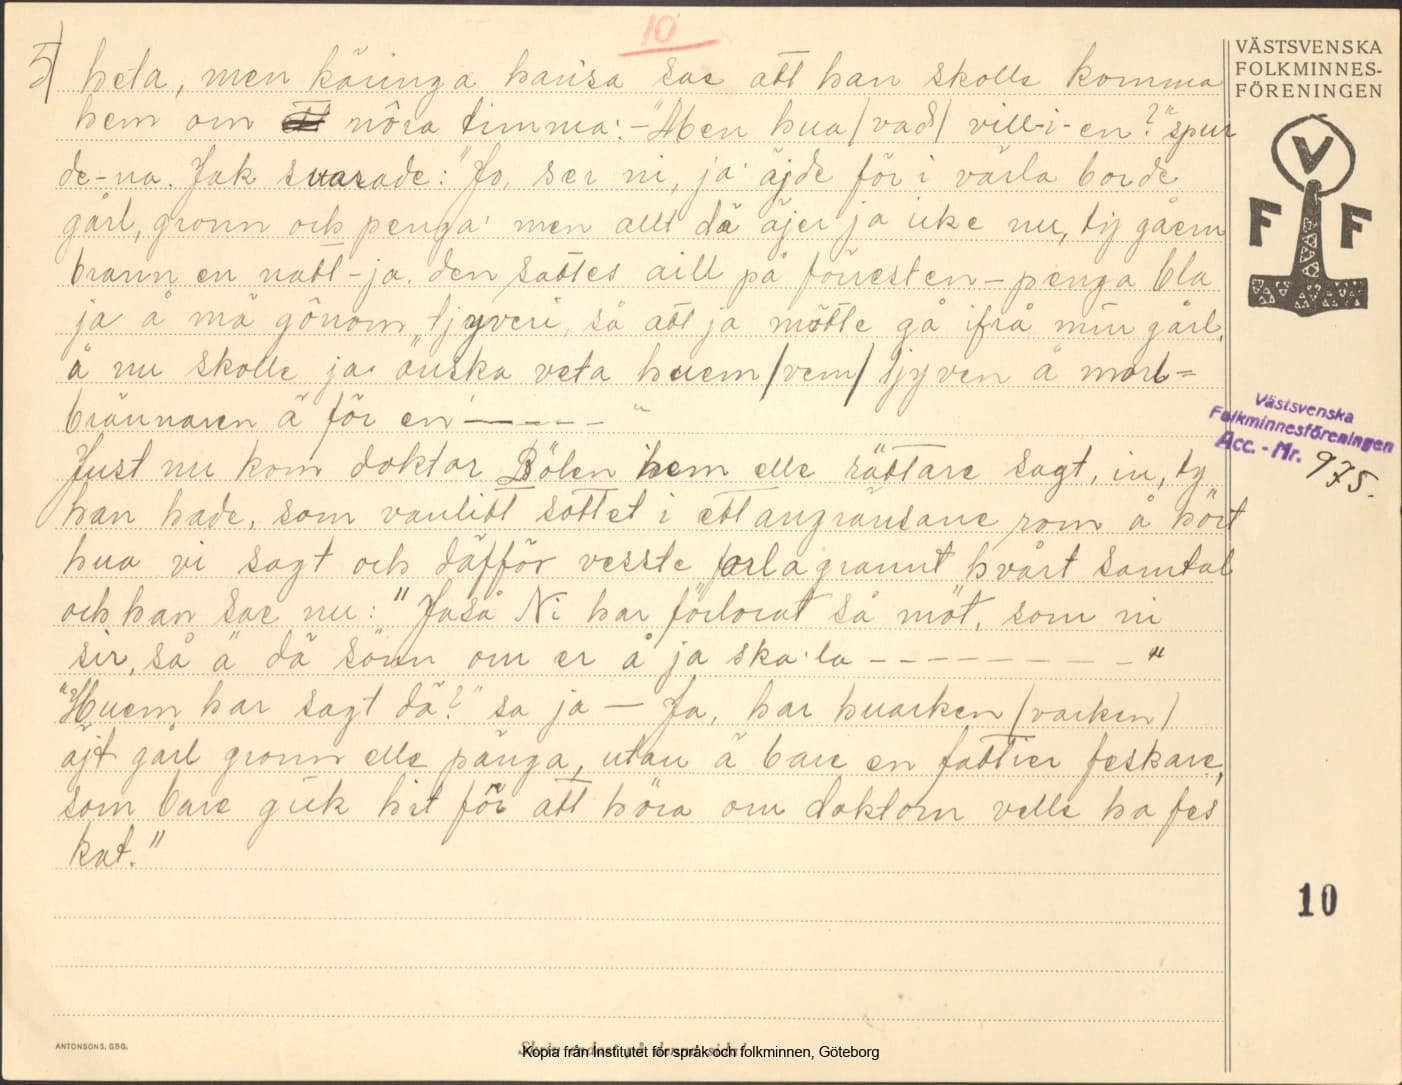 10
5) heta, men käringa hansa sae att han skolle komma
hem om nôra timma: - "Men hua /vad/ vill-i-en?" spur
de-na. Jak svarade: "Jo, ser ni, ja äjde för i värla borde
gårl, gronn och penga men allt dä äjer ja icke nu, ty gåem
brann en natt - ja. den sattes aill på föuesten - penga bla
ja å mä gônom tjyveri, så att ja môtte gå ifrå min gårl,
å nu skolle ja önska veta huem /vem/ tjyven å morl=
brännaren ä för en - - - - - "
Just nu kom doktor Bölen hem elle rättare sagt, in, ty
han hade, som vanlitt sottet i ett angränsane rom å hört
hua vi sagt och däfför vesste farlagrannt hvårt samtal
och han sae nu: "Jaså Ni har förlorat så möt, som ni
sir, så ä dä sönn om er å ja ska·la - - - - - - - - - "
"Huem har sagt dä?" sa ja — Ja, har huarken /varken/
äjt gårl gronn elle pänga, utan ä bare en fattier feskare,
som bare gick hit för att höra om doktorn velle ha fes
kat."
VÄSTSVENSKA
FOLKMINNES-
FÖRENINGEN
V
F F
Västsvenska
Folkminnesföreningen
Acc. - Nr. 975.
10
ANTONSONS, GBG.
Kopia från Institutet för språk och folkminnen, Göteborg